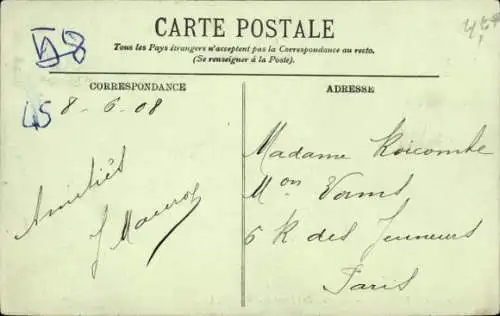 CARTE POSTALE
Tous les Pays étrangers n'acceptent pas la Correspondance au recto.
(Se renseigner à la Poste).
CORRESPONDANCE
ADRESSE
45
8-6-08
Amitiés
J
Madame
Mon
6 R des Jeuneurs
Paris